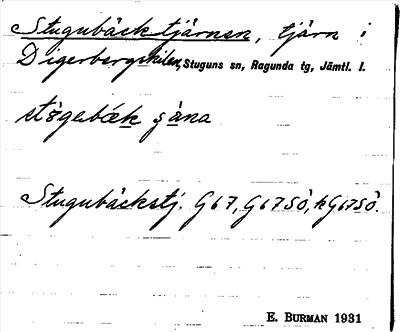 Stugubäckstjärnen, tjärn i
Digerbergskilen, Stuguns sn, Ragunda tg, Jämtl. l.
Stugubäckstj. G67, G67SÖ, kG67SÖ.
E. BURMAN 1931